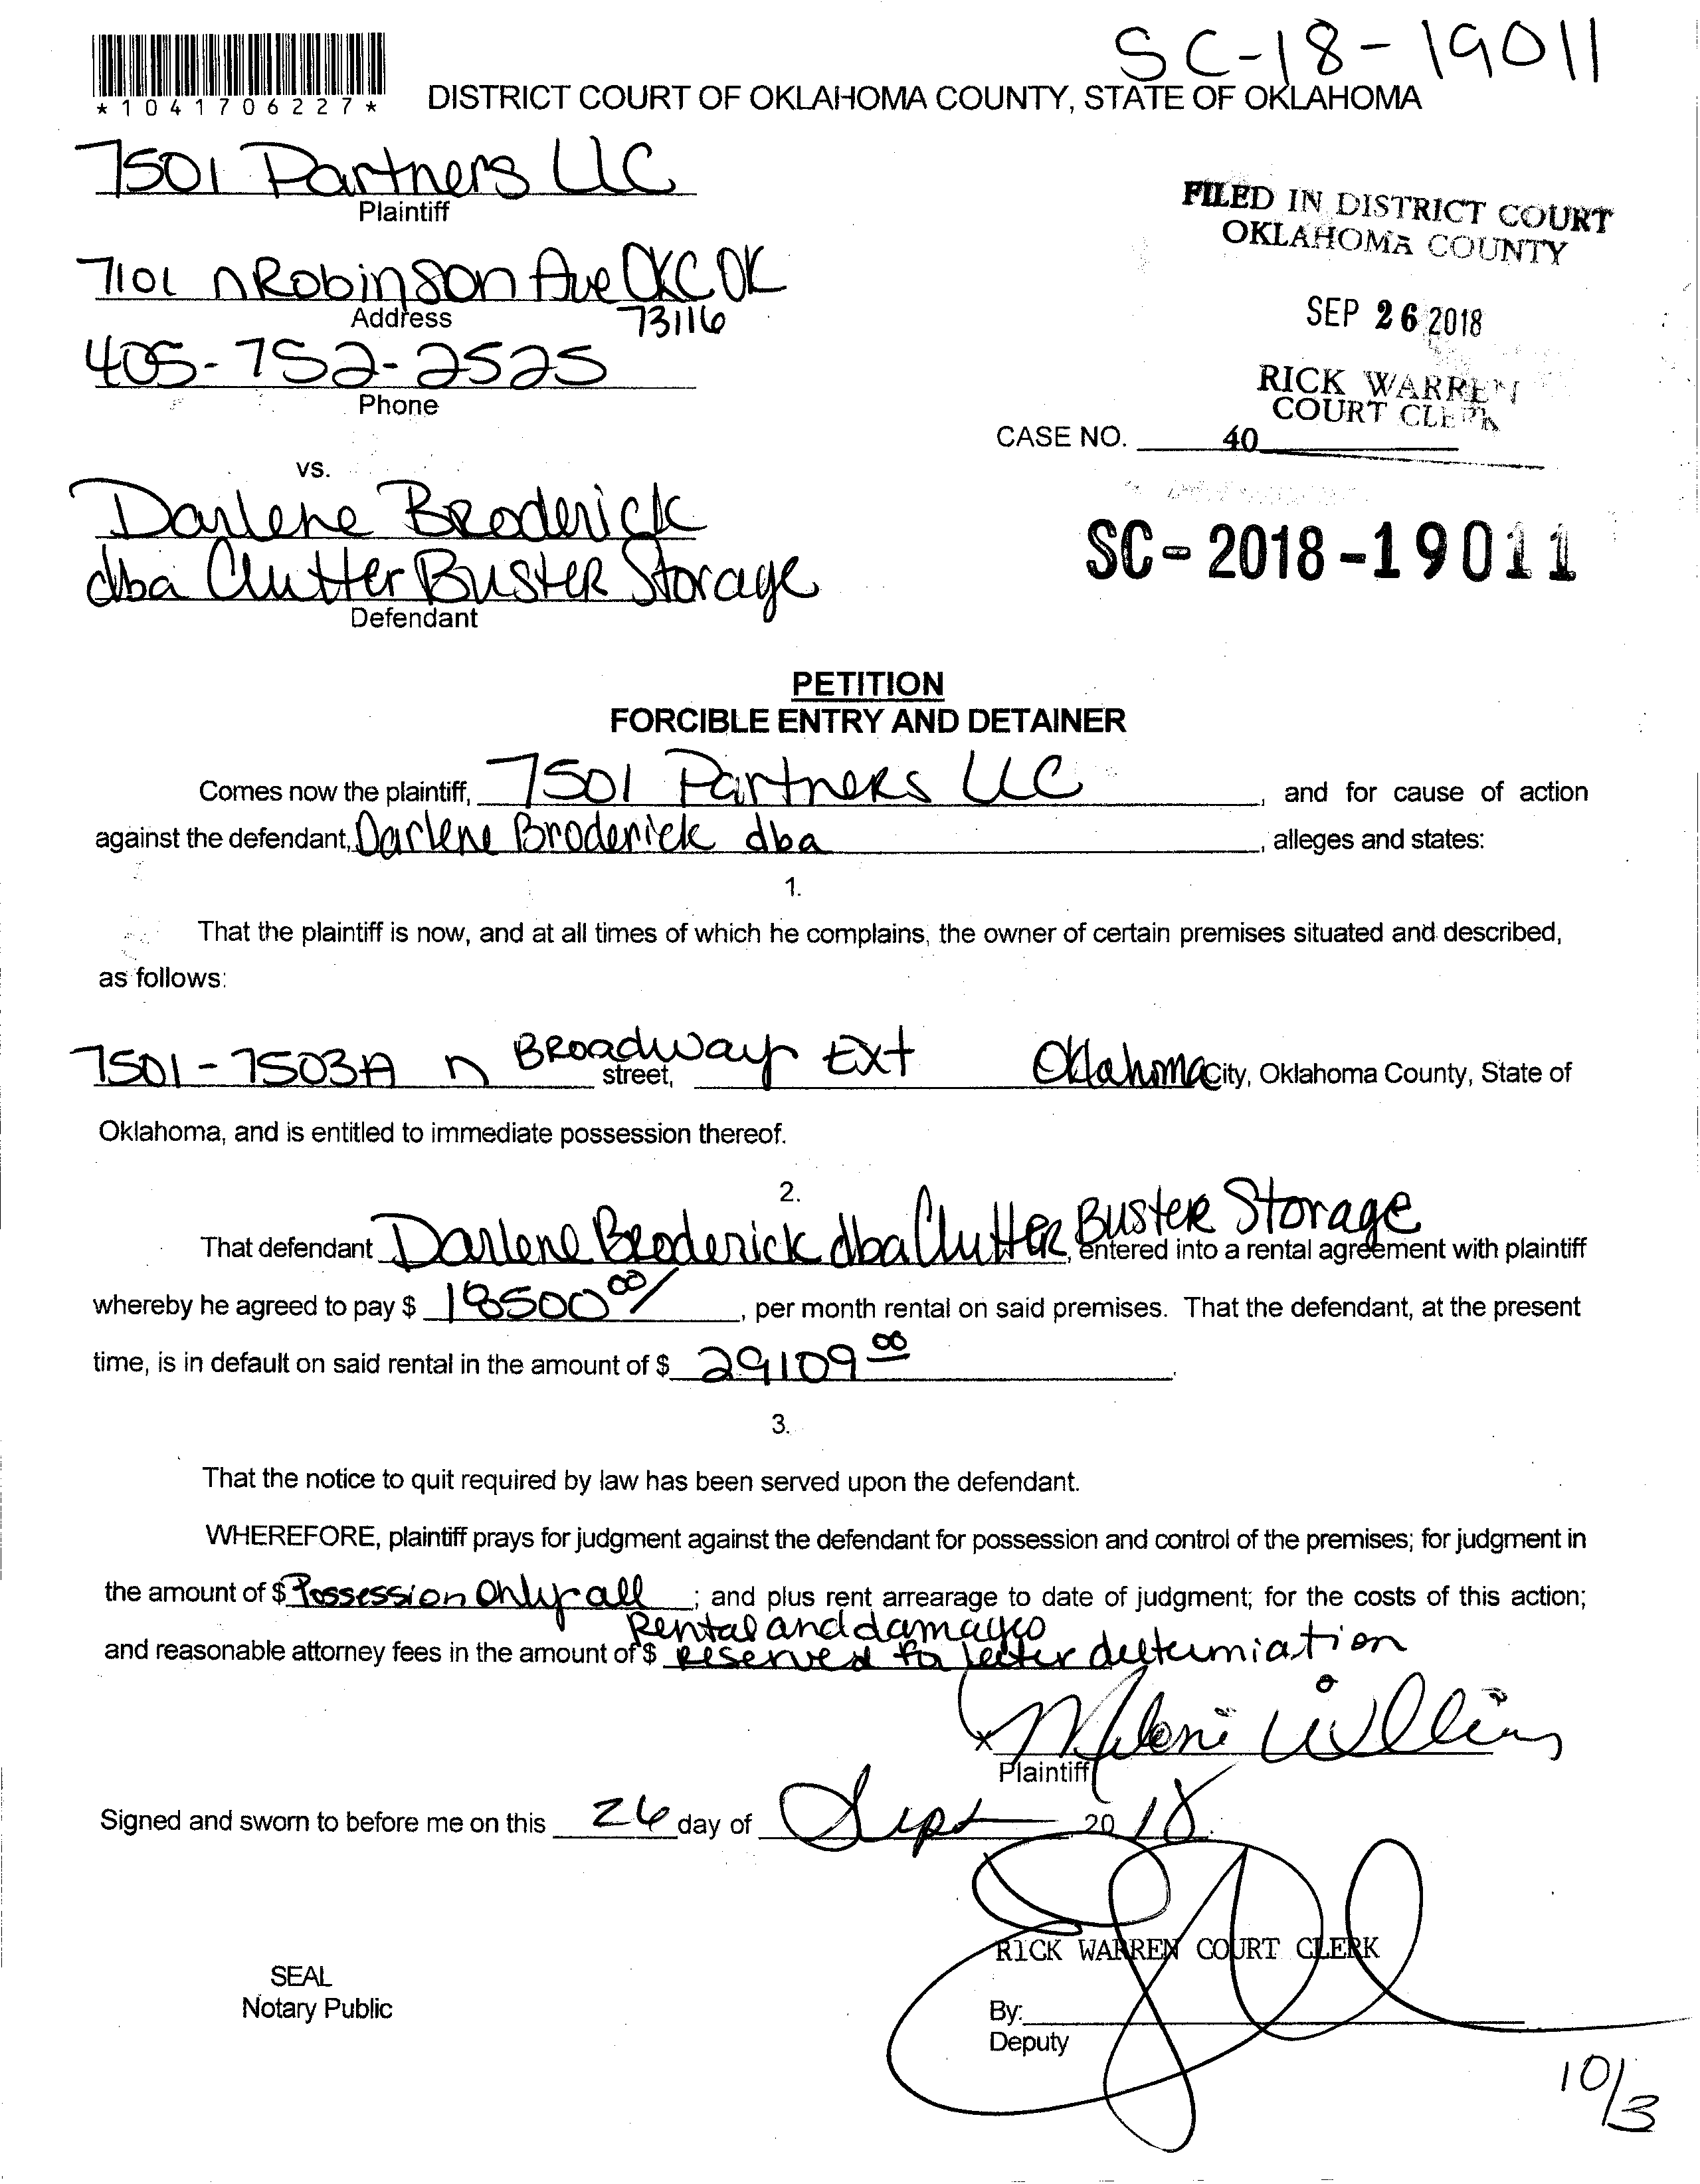 SC-18-19011
*1041706227*
DISTRICT COURT OF OKLAHOMA COUNTY, STATE OF OKLAHOMA
7501 Partners LLC
Plaintiff
FILED IN DISTRICT COURT
OKLAHOMA COUNTY
7101 N Robinson Ave OKC OK
Address
73116
SEP 26 2018
405-752-2525
Phone
RICK WARREN
COURT CLERK
CASE NO.
40
vs.
Darlene Broderick
dba Clutter Buster Storage
Defendant
SC-2018-19011
PETITION
FORCIBLE ENTRY AND DETAINER
Comes now the plaintiff, 7501 Partners LLC, and for cause of action
against the defendant, Darlene Broderick dba, alleges and states:
1.
That the plaintiff is now, and at all times of which he complains, the owner of certain premises situated and described,
as follows:
7501-7503A N Broadway Ext street, Oklahoma City, Oklahoma County, State of
Oklahoma, and is entitled to immediate possession thereof.
2.
That defendant Darlene Broderick dba Clutter Buster Storage, entered into a rental agreement with plaintiff
whereby he agreed to pay $ 18500 00/, per month rental on said premises. That the defendant, at the present
time, is in default on said rental in the amount of $ 29109 00.
3.
That the notice to quit required by law has been served upon the defendant.
WHEREFORE, plaintiff prays for judgment against the defendant for possession and control of the premises; for judgment in
the amount of $ Possession Only-all; and plus rent arrearage to date of judgment; for the costs of this action;
Rental and damages
and reasonable attorney fees in the amount of $ reserved for later determiation
x
Plaintiff
Signed and sworn to before me on this 26 day of Sept 2018.
RICK WARREN COURT CLERK
SEAL
Notary Public
By:
Deputy
10/3